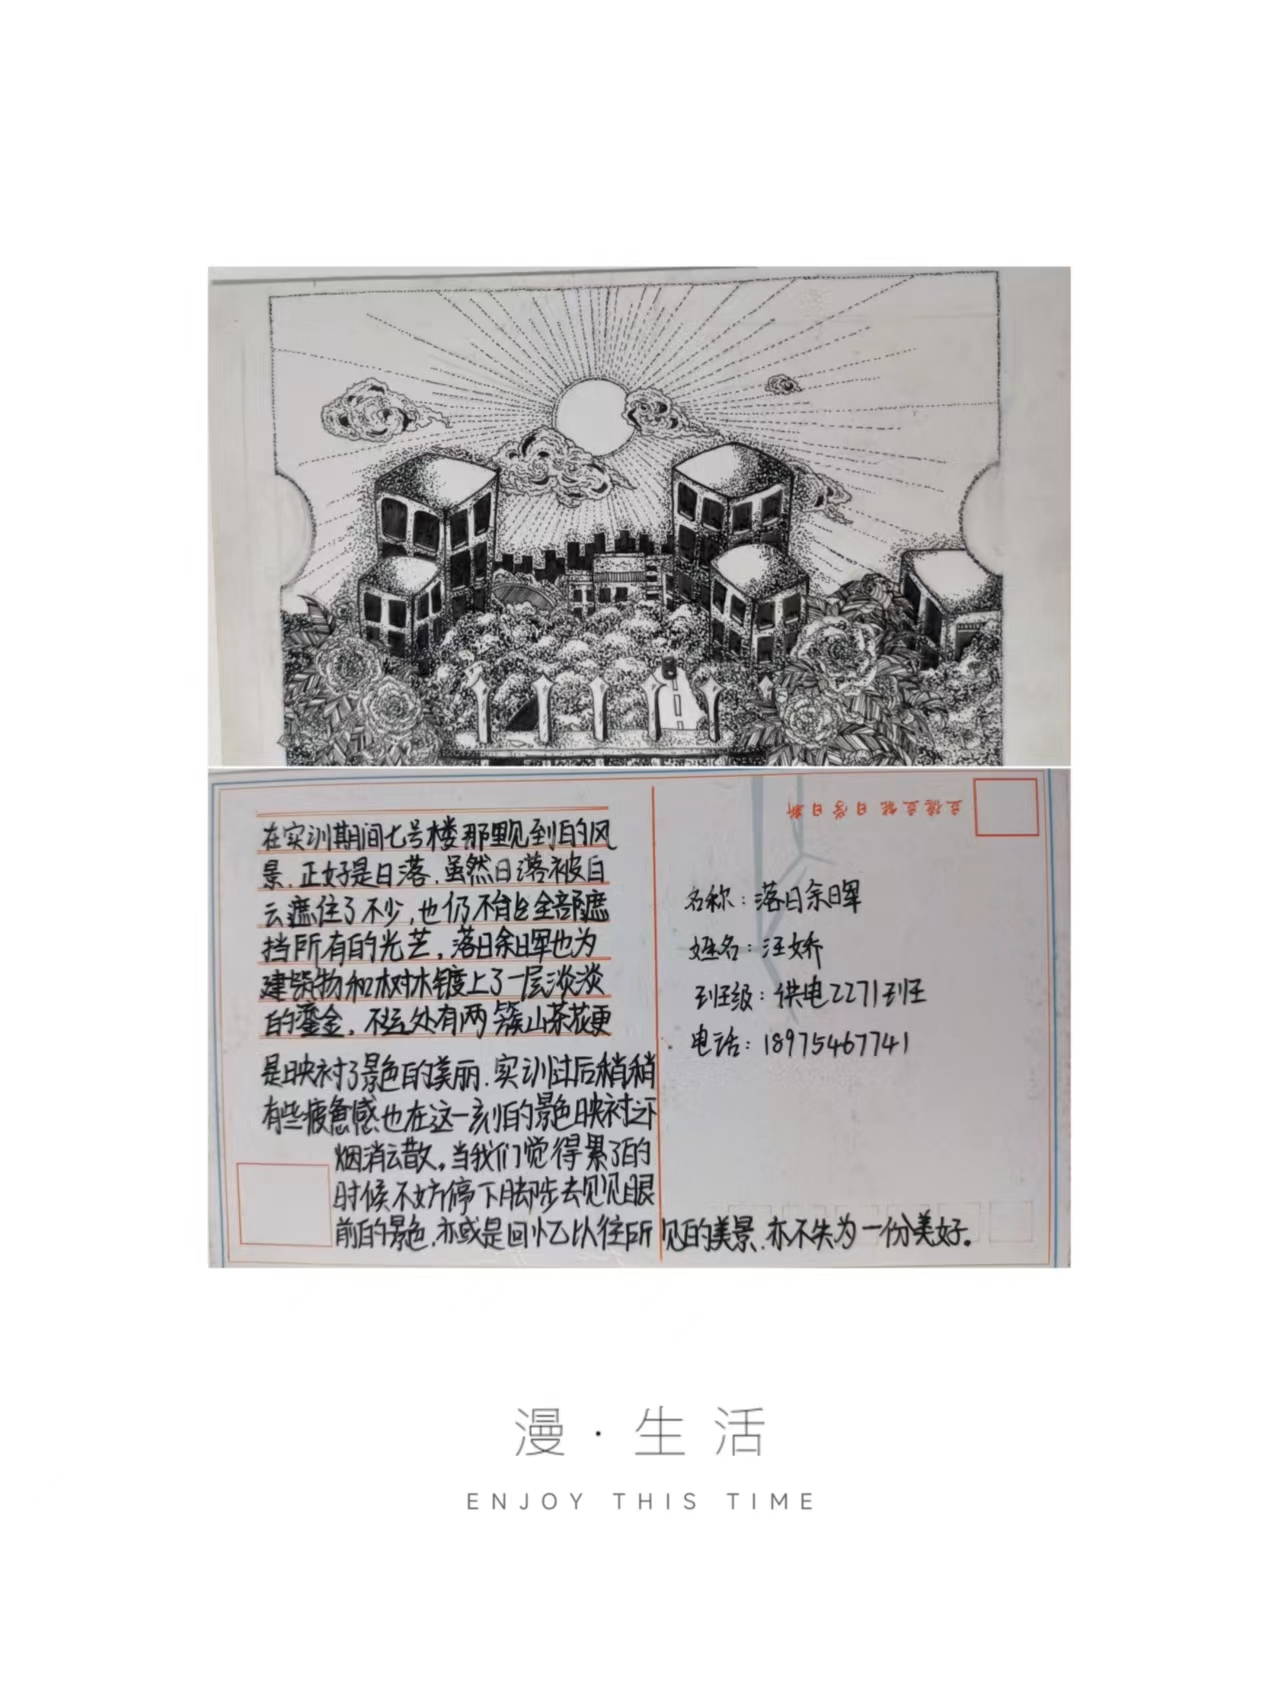 在实训期间七号楼那里见到的风
景.正好是日落.虽然日落被白
云遮住了不少,也仍不能全部遮
挡所有的光芒,落日余晖也为
建筑物和树木镀上了一层淡淡
的鎏金,不远处有两簇山茶花更
是映衬了景色的美丽.实训过后稍稍
有些疲惫感也在这一刻的景色映衬之下
烟消云散。当我们觉得累了的
时候不妨停下脚步去见见眼
前的景色,亦或是回忆以往所见的美景.亦不失为一份美好。
立德立能 日学日新
名称:落日余晖
姓名:汪娇
班级:供电2271班
电话:18975467741
漫·生活
ENJOY THIS TIME